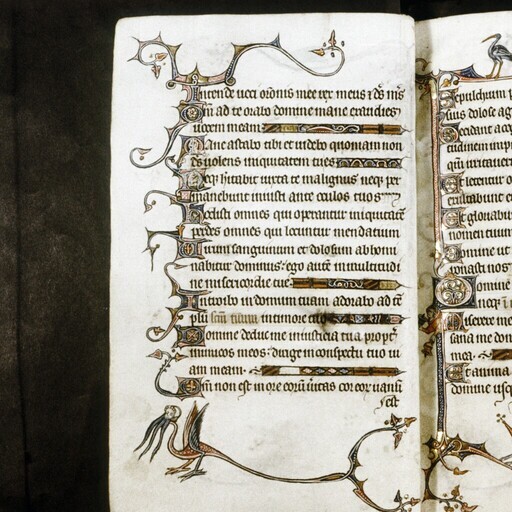 Intende uoci orõnis mee rex meus et ds ms
Qm ad te orabo domine mane exaudies
uocem meam
Mane astabo tibi et uidebo quoniam non
ds uolens iniquitatem tu es
Neqz habitabit iuxta te malignus neqz per
manebunt iniusti ante oculos tuos
Odisti omnes qui operantur iniquitatẽ
perdes omnes qui locuntur mendatium
Uirum sanguinum et dolosum abhomi
nabitur dominus: ego autẽ in multitudi
ne misericordie tue
Introibo in domum tuam adorabo ad tẽ
plũ scm tuum in timore tuo
Domine deduc me in iusticia tua propt̃
inimicos meos: dirige in conspectu tuo ui
am meam
Qm non est in ore eorũ ueritas cor eorũ uanũ
est
Sepulchrum p
suis dolose ag
Decidant a co
tudinem imp
qm irritauer
Et letentur o
exultabunt e
Et gloriabu
nomen tuum
domine ut
coronasti nos
Domine
neqz ĩ
Miserere me
sana me dom
mea
Et anima
domine usq